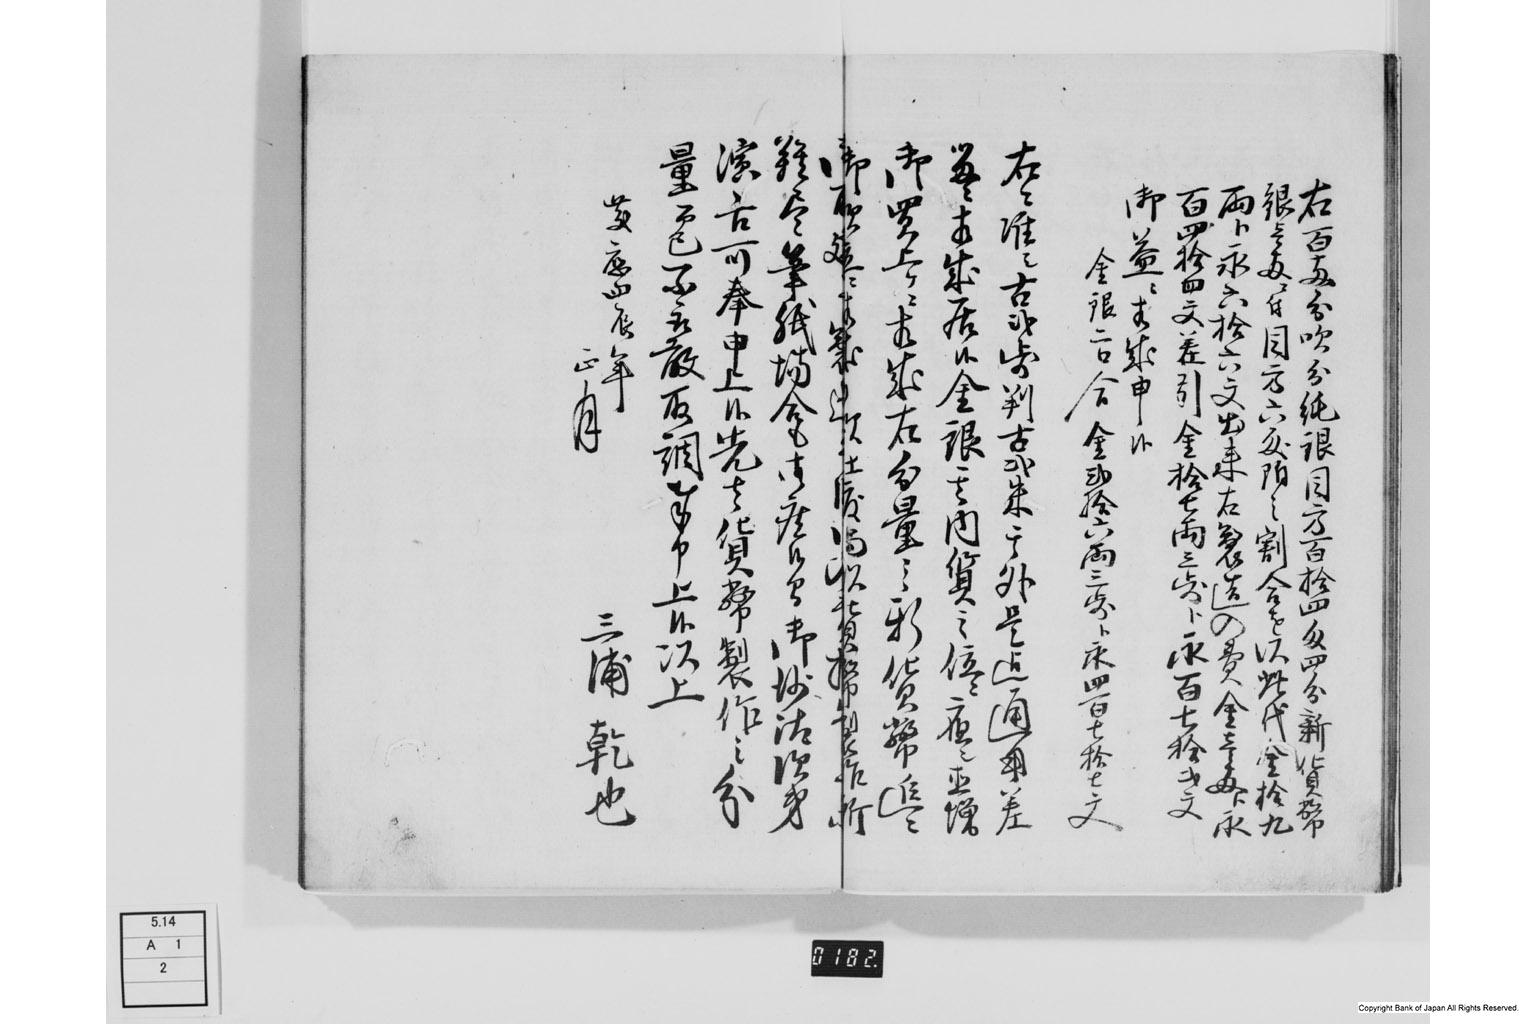 右百匁分吹分純銀目方百拾四匁四分新貨幣
銀壱匁ニ付目方六匁
之割合を以此代金拾九
両ト永六拾六文出来右製造の費金壱両ト永
百四拾四文差引金拾七両三歩ト永百七拾弐文
御益ニ相成申候
金銀二口合金弐拾六両三歩ト永四百七拾七文
右ニ准シ古弐歩判古弐朱其外是迄通用差
相成居候金銀其内貨之位ニ応シ直増
御買上ケニ相成右分量之新貨幣追々
御取
難尽筆紙場合も御座候間御沙汰次第
演舌可奉申上候先者貨幣製作之分
量而已不取敢取調奉申上候以上
慶応四辰年
正月
三浦乾也
5.14
A 1
2
0182.
Copyright Bank of Japan All Rights Reserved.